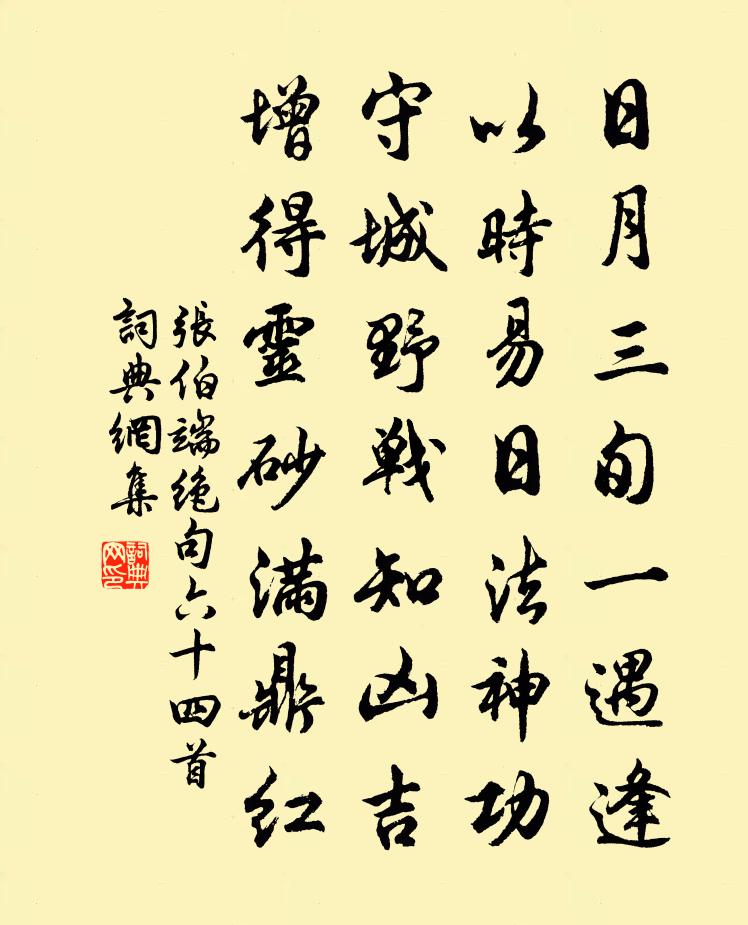 日月三旬一遇逢
以時易日法神功
守城野戰知凶吉
增得靈砂滿鼎红
張伯端绝句六十四首
詞典網集
詞典網印